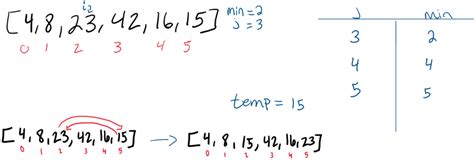 i
[4, 8, 23, 42, 16, 15]
0 1 2 3 4 5
min = 2
j = 3
j min
3 2
4 4
5 5
temp = 15
[4, 8, 23, 42, 16, 15] → [4, 8, 15, 42, 16, 23]
0 1 2 3 4 5 0 1 2 3 4 5